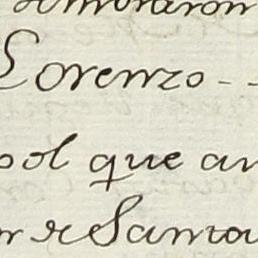 Lorenzo - -
ol que an
r de Santa